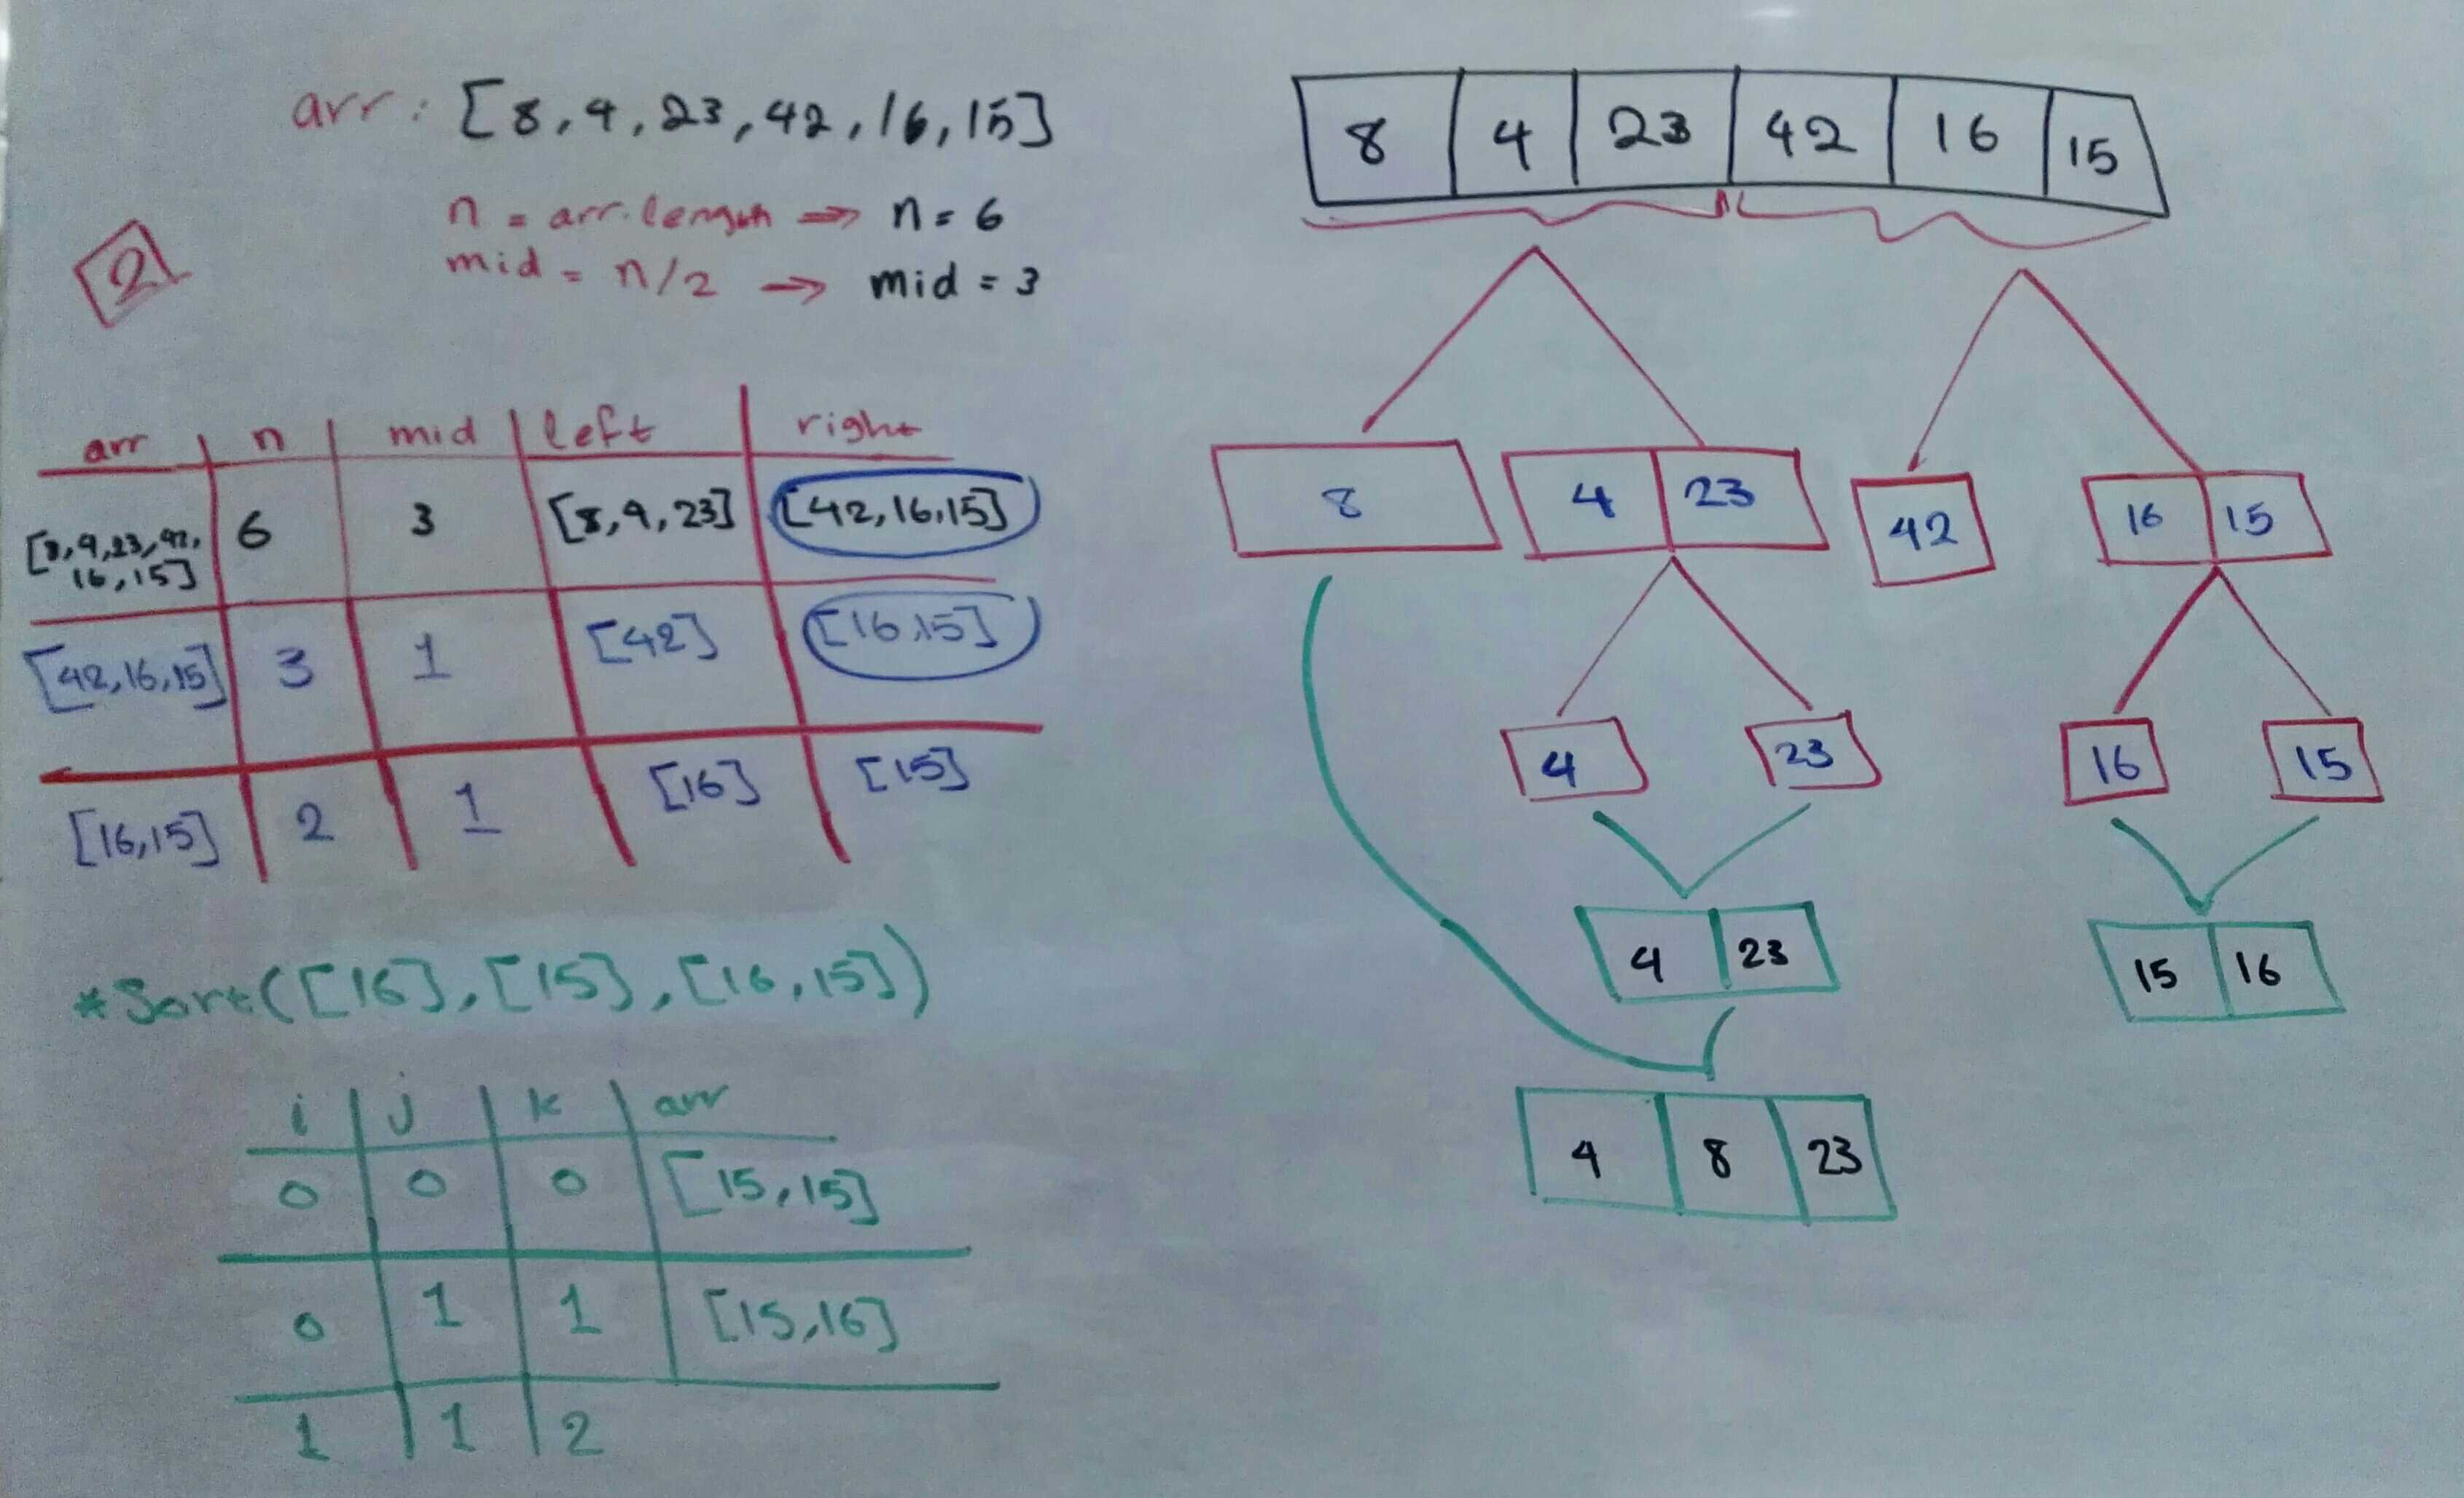 arr: [8,4,23,42,16,15]
n = arr.length ⇒ n = 6
mid = n/2 → mid = 3
2
arr n mid left right
[8,4,23,42,
16,15]
6 3 [8,4,23] [42,16,15]
[42,16,15] 3 1 [42] [16,15]
[16,15] 2 1 [16] [15]
*Sort([16],[15],[16,15])
i j k arr
0 0 0 [15,15]
0 1 1 [15,16]
1 1 2
8 4 23 42 16 15
8 4 23 42 16 15
4 23 16 15
4 23 15 16
4 8 23